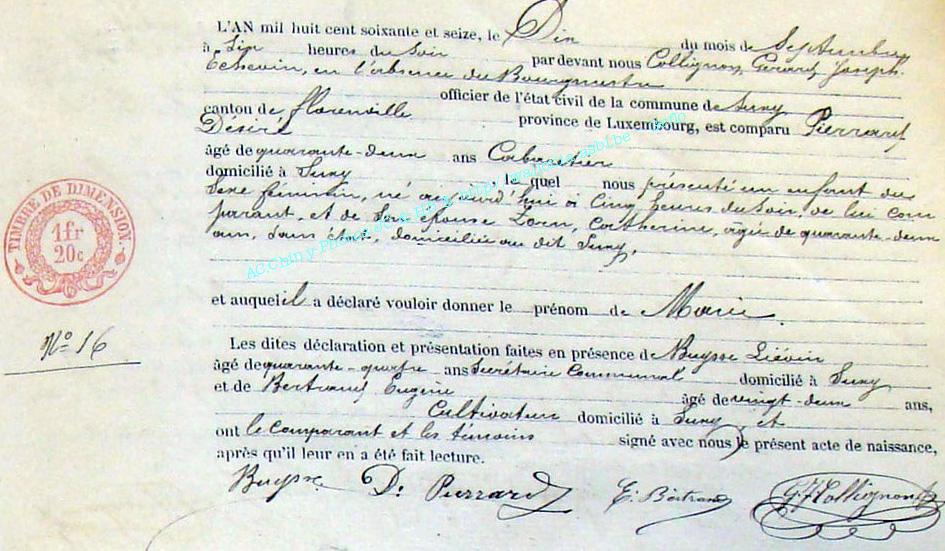 L'AN mil huit cent soixante et seize, le Dix du mois de Septembre
à Six heures du Soir par devant nous Collignon, Gérard, Joseph.
Echevin, en l'absence du Bourgmestre
officier de l'état civil de la commune de Suny
canton de florenville province de Luxembourg, est comparu Pierrard
Désiré
âgé de quarante-deux ans Cabaretier
domicilié à Suny le quel nous présenté un enfant du
Sexe féminin, né aujourd'hui à Cinq heures du Soir, de lui com
parant, et de Son épouse Zoren, Catherine, agée de quarante-deux
ans, Sans état, domiciliée au dit Suny,
TIMBRE DE DIMENSION.
1fr
20c
et auquel il a déclaré vouloir donner le prénom de Marie.
N° 16
Les dites déclaration et présentation faites en présence de Buysse Liévin
âgé de quarante-quatre ans Secrétaire Communal domicilié à Suny
et de Bertrand Eugène âgé de vingt-deux ans,
Cultivateur domicilié à Suny et
ont le comparant et les témoins signé avec nous le présent acte de naissance,
après qu'il leur en a été fait lecture.
Buysse D. Pierrard E. Bertrand G. J. Collignon